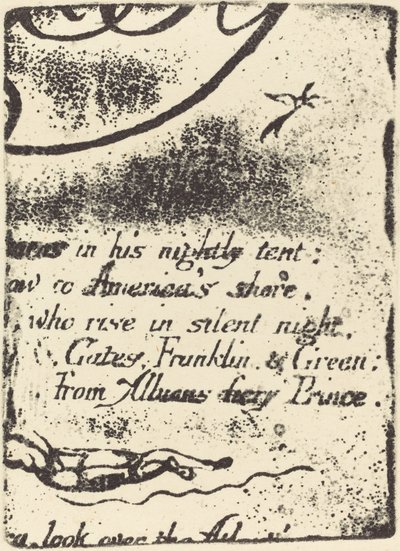 in his nightly tent:
ow to America's shore.
, who rise in silent night,
Gates, Franklin & Green.
from Albions fiery Prince.
a, look over the